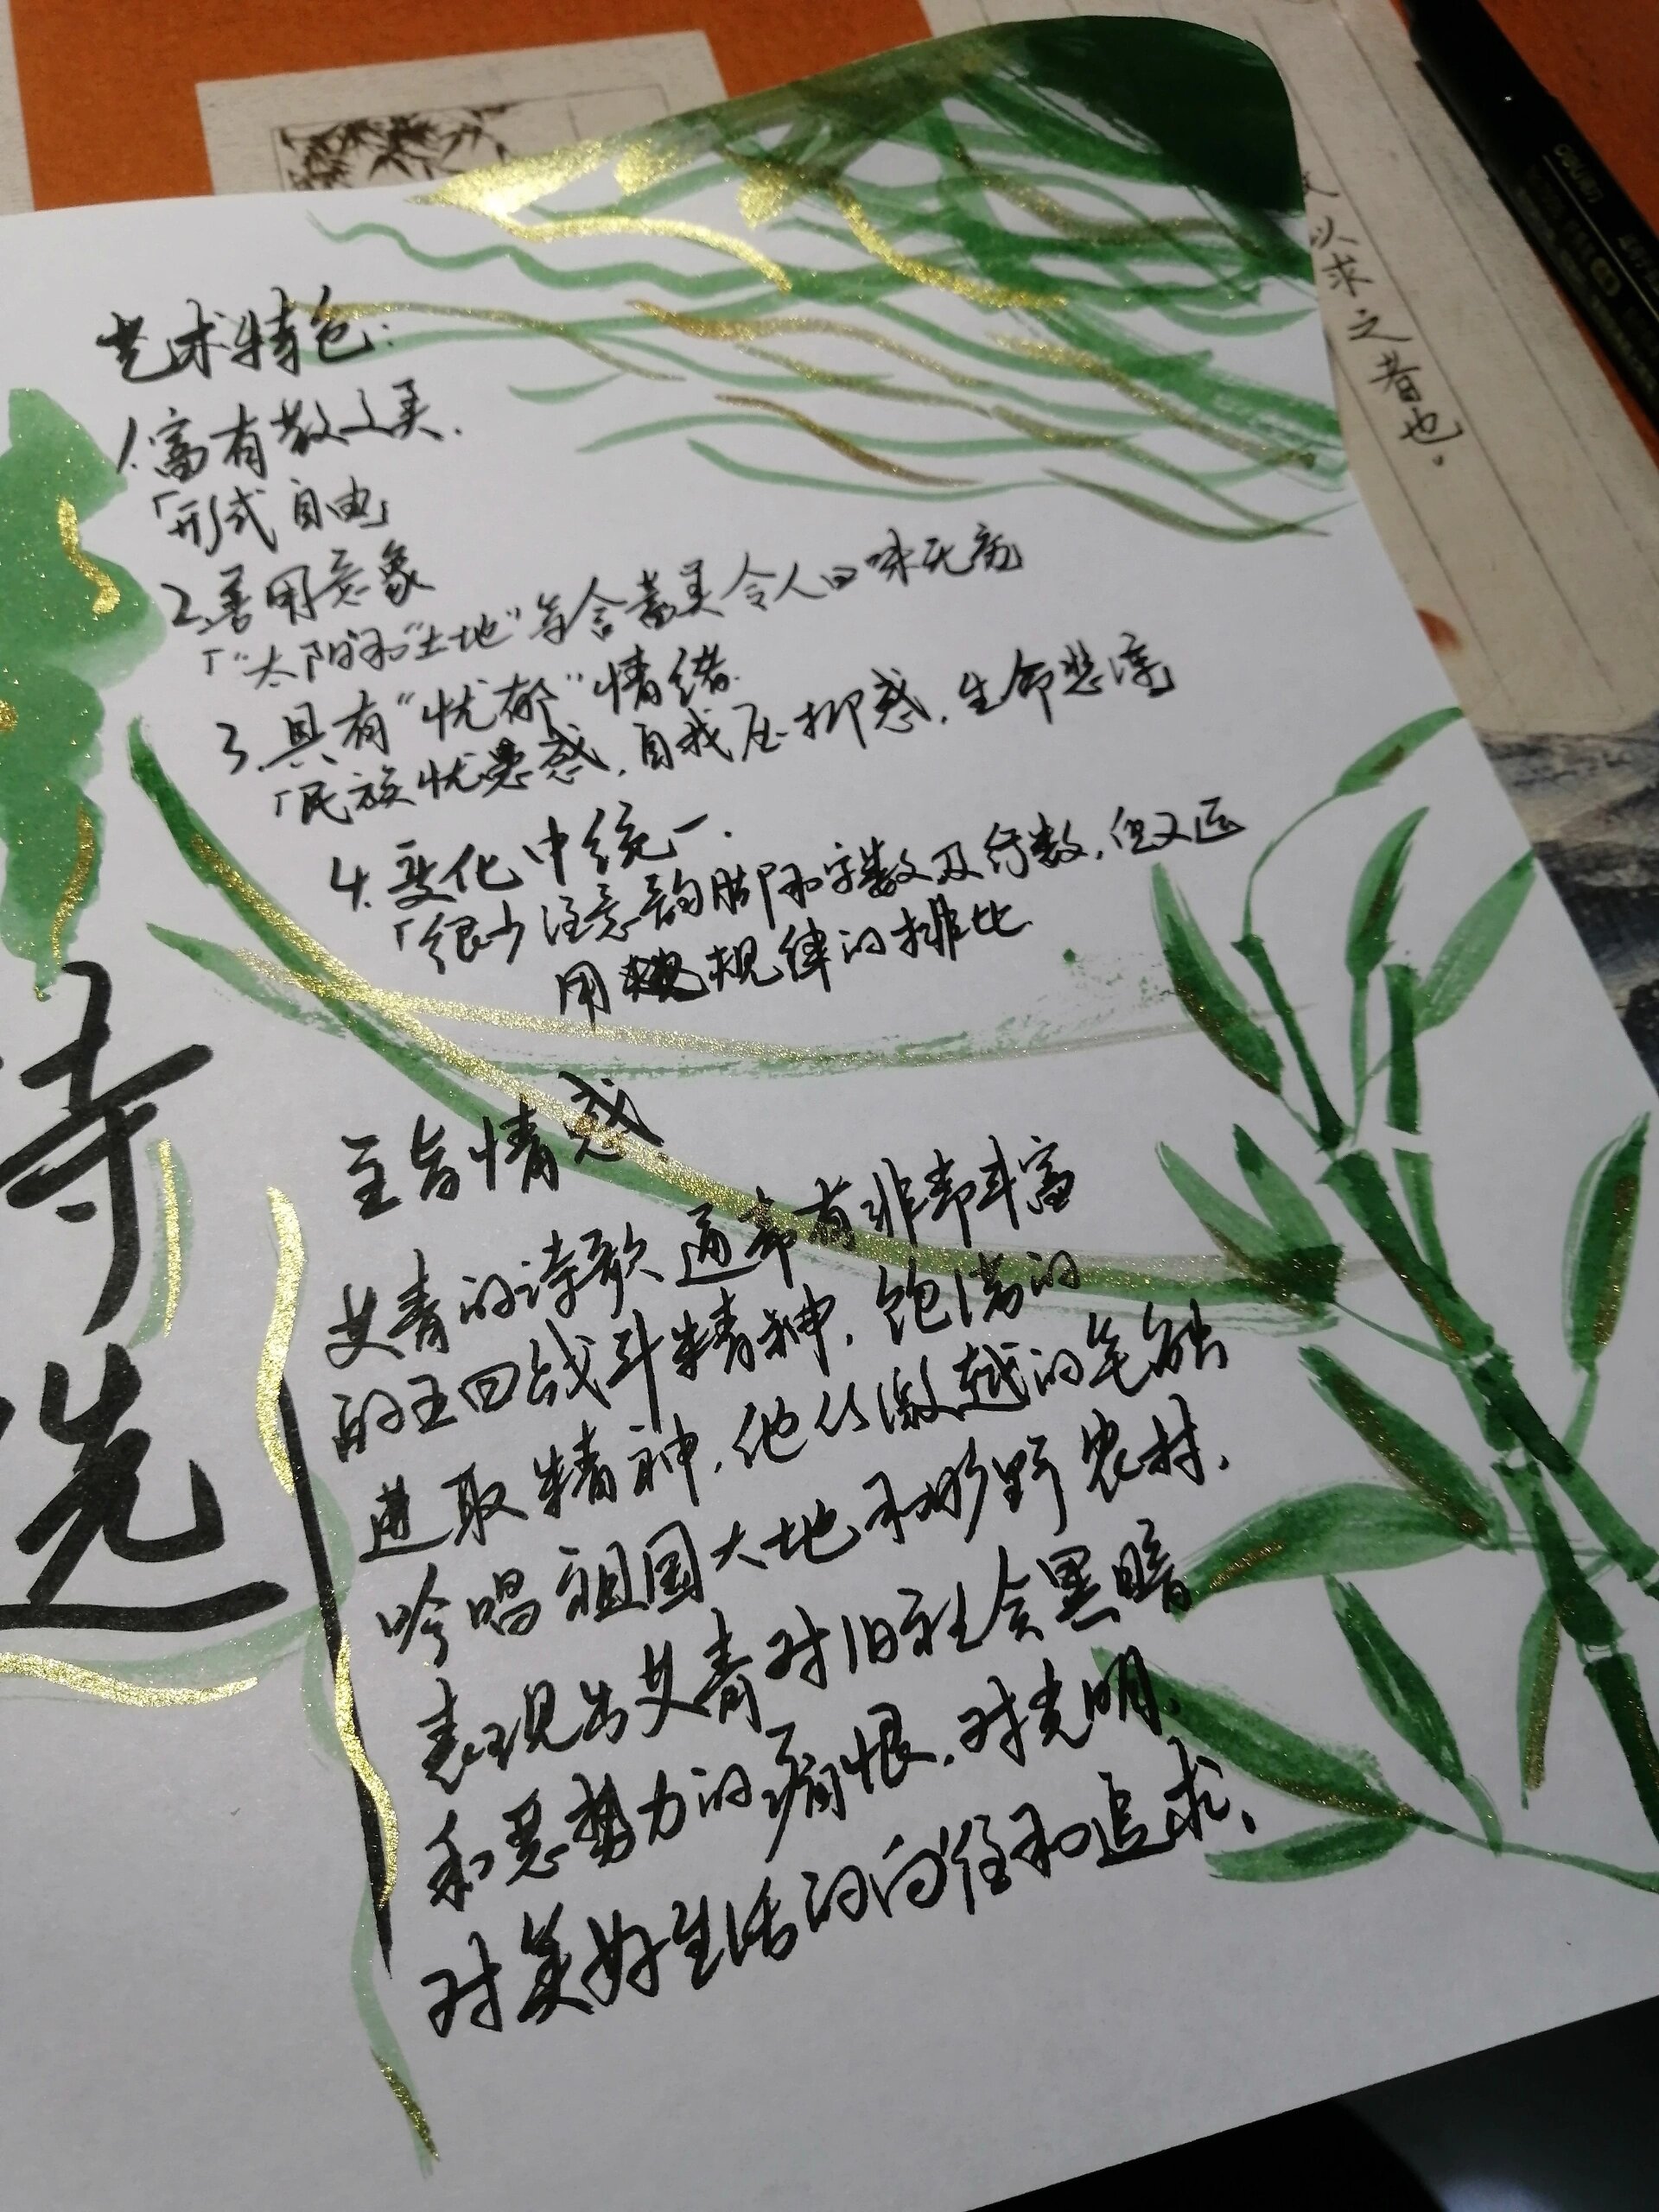 艺术特色:
1.富有散文美.
「形式自由」
2.善用意象
「"太阳"和"土地"等含蓄美令人回味无穷
3.具有"忧郁"情绪.
「民族忧患感,自我压抑感,生命悲凉」
4.变化中统一.
「很少注意韵脚和字数及行数,但又运
用规律的排比
主旨情感.
艾青的诗歌通常有非常丰富
的王回战斗精神,饱满的
进取精神,他以激越的笔触
吟唱祖国大地和乡野农村,
表现出艾青对旧社会黑暗
和恶势力的痛恨,对光明、
对美好生活的向往和追求.
诗
选
以求之者也。
deli